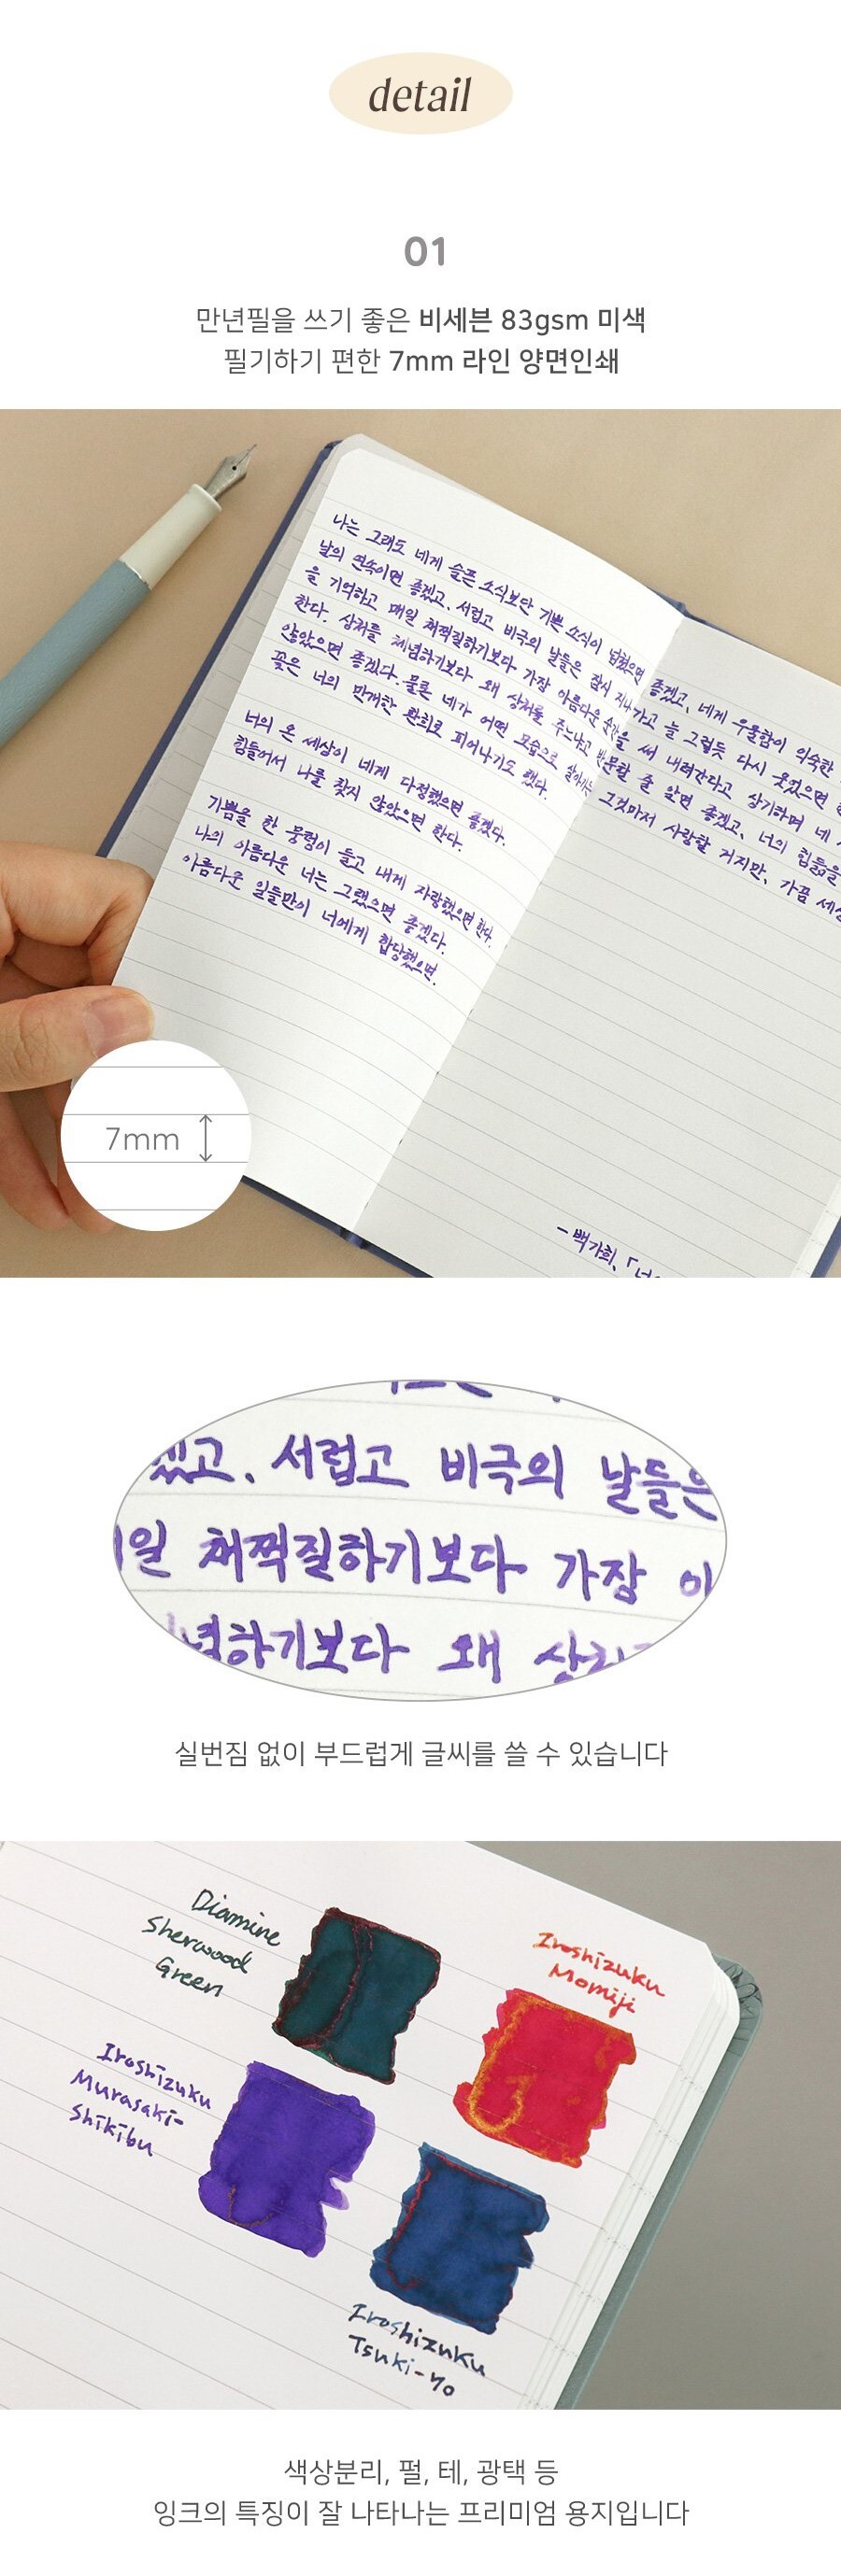 detail
01
만년필을 쓰기 좋은 비세븐 83gsm 미색
필기하기 편한 7mm 라인 양면인쇄
나는 그래도 네게 슬픈 소식보단 기쁜 소식이 넘쳤으면 좋겠고, 네게 우울함이 익숙한
날의 연속이면 좋겠고, 서럽고 비극의 날들은 잠시 지나가고 늘 그렇듯 다시 웃었으면
을 기억하고 매일 채찍질하기보다 가장 아름다운 순간을 써 내려간다고 상기하며 네
한다. 상처를 체념하기보다 왜 상처를 주는냐고 반문할 줄 알면 좋겠고, 너의 힘듦을
않았으면 좋겠다. 물론 네가 어떤 모습으로 살아가든 그것마저 사랑할 거지만, 가끔 세상
꽃은 너의 만개한 환희로 피어나기도 했다.
너의 온 세상이 네게 다정했으면 좋겠다.
힘들어서 나를 찾지 않았으면 한다.
기쁨을 한 뭉텅이 들고 내게 자랑했으면 한다.
나의 아름다운 너는 그랬으면 좋겠다.
아름다운 일들만이 너에게 합당했으면.
- 백가희, 「너
7mm
겠고, 서럽고 비극의 날들은
일 채찍질하기보다 가장 아
념하기보다 왜 상처
실번짐 없이 부드럽게 글씨를 쓸 수 있습니다
Diamine
Sherwood
Green
Iroshizuku
Momiji
Iroshizuku
Murasaki-
Shikibu
Iroshizuku
Tsuki-yo
색상분리, 펄, 테, 광택 등
잉크의 특징이 잘 나타나는 프리미엄 용지입니다